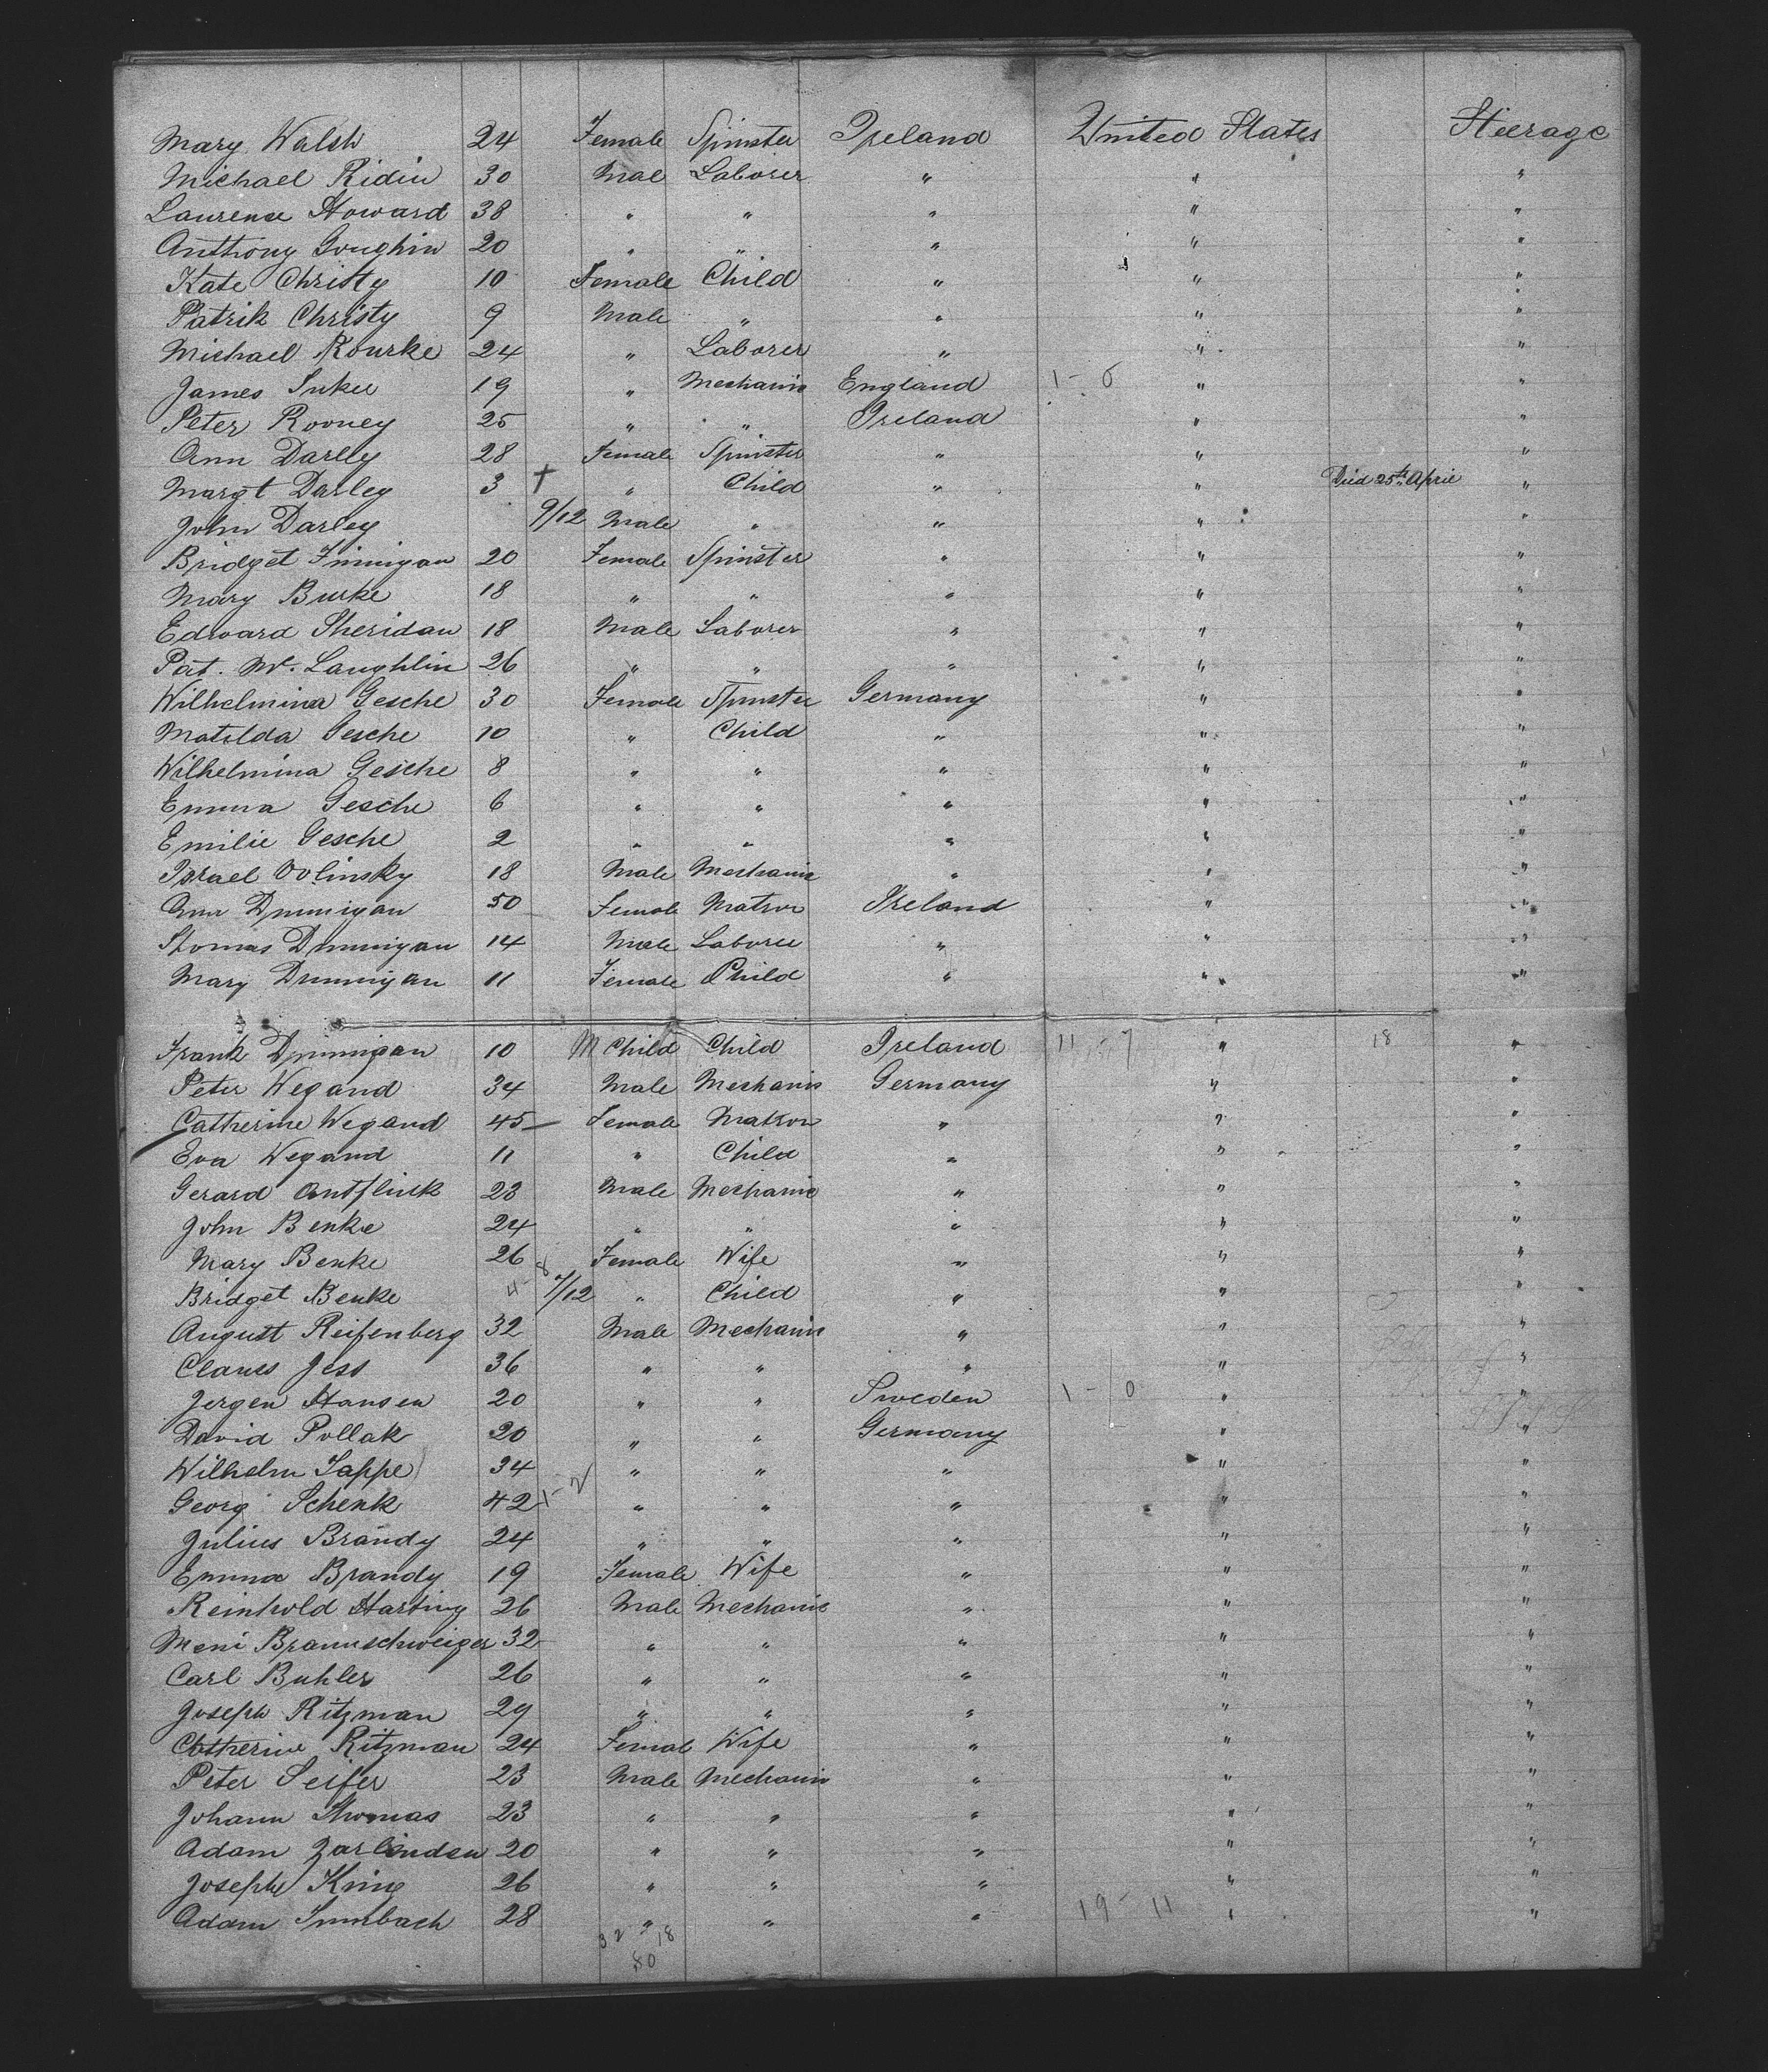 Mary Walsh 24 Female Spinster Ireland United States Steerage
Michael Ridin 30 Mal Laborer " " "
Laurence Howard 38 " " " " "
Anthony Goughin 20 " " " " "
Kate Christy 10 Female Child " " "
Patrik Christy 9 Male " " " "
Michael Rourke 24 " Laborer " " "
James 19 " Mechanic England 1 - 0 " "
Peter Rooney 25 " " Ireland " "
Ann Darley 28 Female Spinster " " "
Margt Darley 3 + " Child " " Died 25th April "
John Darley 9/12 Male " " " "
Bridget Finnigan 20 Female Spinster " " "
Mary Burke 18 " " " " "
Edward Sheridan 18 Male Laborer " " "
Pat. Mc. Laughlin 26 " " " " "
Wilhelmina Gesche 30 Female Spinster Germany " "
Matilda Gesche 10 " Child " " "
Wilhelmina Gesche 8 " " " " "
Emma Gesche 6 " " " " "
Emilie Gesche 2 " " " " "
Israel Wolinsky 18 Male Mechanic " " "
Ann Dunnigan 50 Female Matron Ireland " "
Thomas Dunnigan 14 Male Laborer " " "
Mary Dunnigan 11 Female Child " " "
Frank Dunnigan 10 M Child Child Ireland 11 - 7 " 18 "
Peter Wegand 34 Male Mechanic Germany " "
Catherine Wegand 45 Female Matron " " "
Eva Wegand 11 " Child " " "
Gerard Antflink 23 Male Mechanic " " "
John Benke 24 " " " " "
Mary Benke 26 Female Wife " " "
Bridget Benke 4 - 8 7/12 " Child " " "
August Reifenberg 32 Male Mechanic " " "
Claus Jess 36 " " " " "
Jergen Hansen 20 " " Sweden 1 - 0 " "
David Pollak 20 " " Germany " "
Wilhelm Sappe 34 " " " " "
Georg Schenk 42 1 - 2 " " " " "
Julius Brandy 24 " " " " "
Emma Brandy 19 Female Wife " " "
Reinhold Harting 26 Male Mechanic " " "
Meni Braunschweiger 32 " " " " "
Carl Buhler 26 " " " " "
Joseph Ritzman 29 " " " " "
Catherine Ritzman 24 Femal Wife " " "
Peter Seifer 23 Male Mechanic " " "
Johann Thomas 23 " " " " "
Adam Zarlinden 20 " " " " "
Joseph King 26 " " " " "
Adam 28 " " " 19 - 11 " "
32 - 18
50